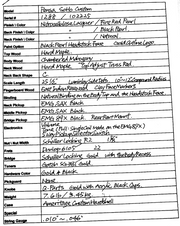 Model Persia Sotto Custom
Serial # 1288 / 102225
Finish / Color Nitrocellulose Lacquer / Fire Red Pearl
Back Finish / Color / Black Pearl
Neck Finish / Color / Natural
Paint Option Black Pearl Headstock Face Gold Outline Logo
Top Wood Hard Maple
Body Wood Chambered Mahogany
Neck Wood Hard Maple Top Adjust Truss Rod
Neck Back Shape C
Scale Length 25.5" Luminlay Side Dots 10"-14" Compound Radius
Fingerboard Wood East Indian Rosewood Clay Face Markers
Binding Natural Binding on the Body Top and the Headstock Face
Neck Pickup EMG SAX Black
Middle Pickup EMG SAX Black
Bridge Pickup EMG 89X Black Rear Panel Mount
Electronics Volume
Tone (Pull: Single Coil Mode on the EMG 89X)
5 way Pickup Selector Switch
Nut / Nut Width Schaller Locking R2 1 5/8"
Frets Dunlop 6105 22
Bridge Schaller Locking Gold with the body Recess
Tuners Gotoh SG381 Gold
Hardware Color Gold & Black
Pickguard None
Knobs Q-Parts Gold with Acrylic Black Caps
Weight 7.6 lb / 3.45 kg
Case Ameritage Custom Hardshell
Special
String Gauge .010" ~ .046"